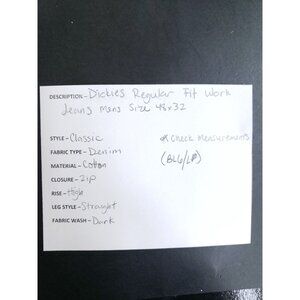 DESCRIPTION - Dickies Regular Fit Work
Jeans Mens Size 48x32
STYLE - Classic
* Check Measurements
FABRIC TYPE - Denim
MATERIAL - Cotton
CLOSURE - Zip
RISE - High
LEG STYLE - Straight
FABRIC WASH - Dark